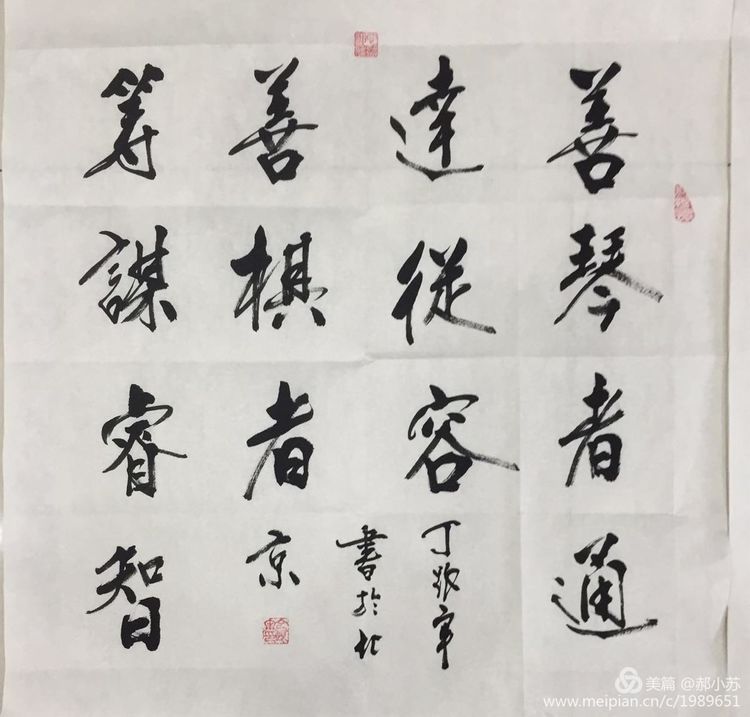 善琴者通
達從容
善棋者
筹謀睿智
丁
書於北
京
美篇 @郝小苏
www.meipian.cn/c/1989651